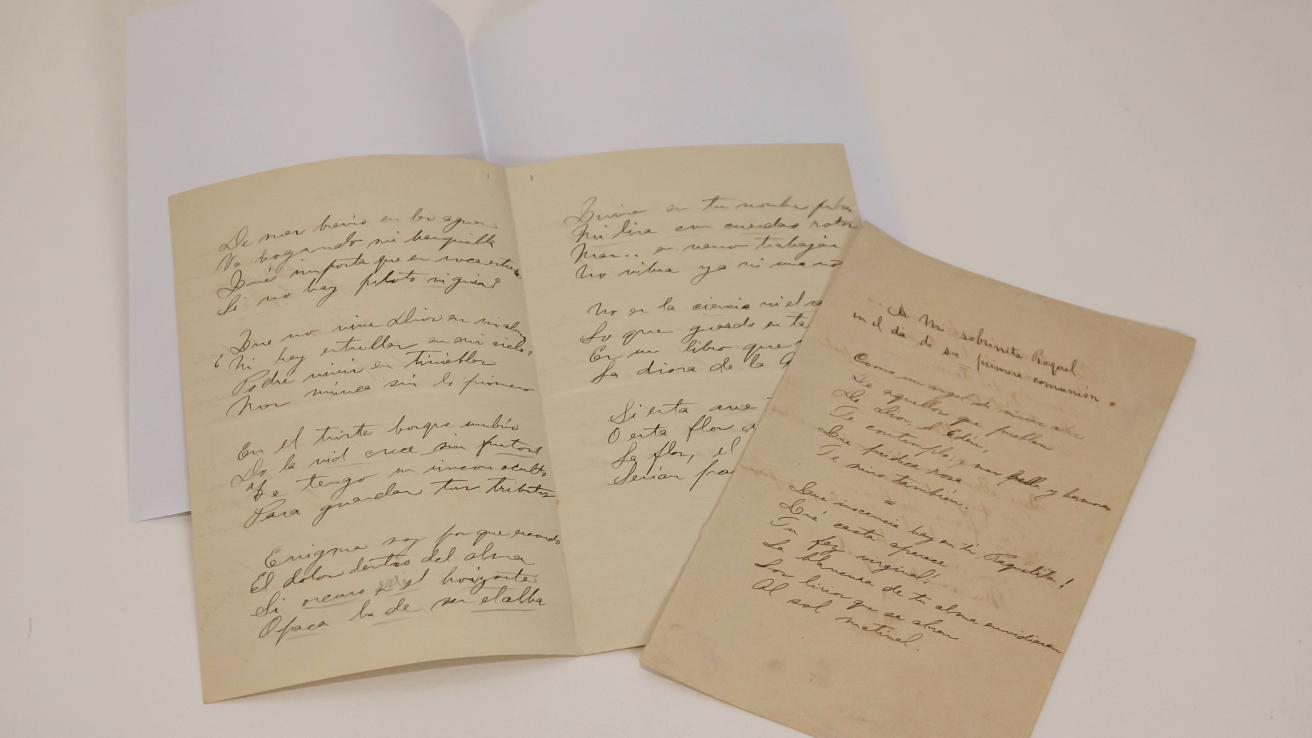 De mar bravío en las aguas
Va bogando mi barquilla
Qué importa que en roca
Si no hay piloto ni guia?
Que no vive Dios en mi alma
¿Ni hay estrellas en mi cielo,
Podré vivir en tinieblas
Mas nunca sin lo primero
En el triste bosque umbrío
Do la vid crece sin frutos
Yo tengo un rincon oculto
Para guardar tus tributos
Enigma soy por que escondo
El dolor dentro del alma
Si oscuro es el horizonte
Opaca ha de ser el alba
en tu nombre
Mi lira con cuerdas rotas
Mas.. en vano trabajan
No vibra ya ni una
No es la ciencia ni el
Lo que guarda en
Es un libro que
La diosa de la
Si esta ave
O esta flor
La flor, el
Serían
A Mi sobrinita Raquel
en el día de su primera comunión.
Como un angel de
De aquellos que pueblan
De Dios, el Edén,
Te contemplo, y mas bella y hermosa
Que púdica rosa
Te miro también.
=
Que inocencia hay en ti, Raquelita!
Qué casta aparece
Tu faz virginal!
La blancura de tu alma envidiaran
Los lirios que se abren
Al sol matinal.